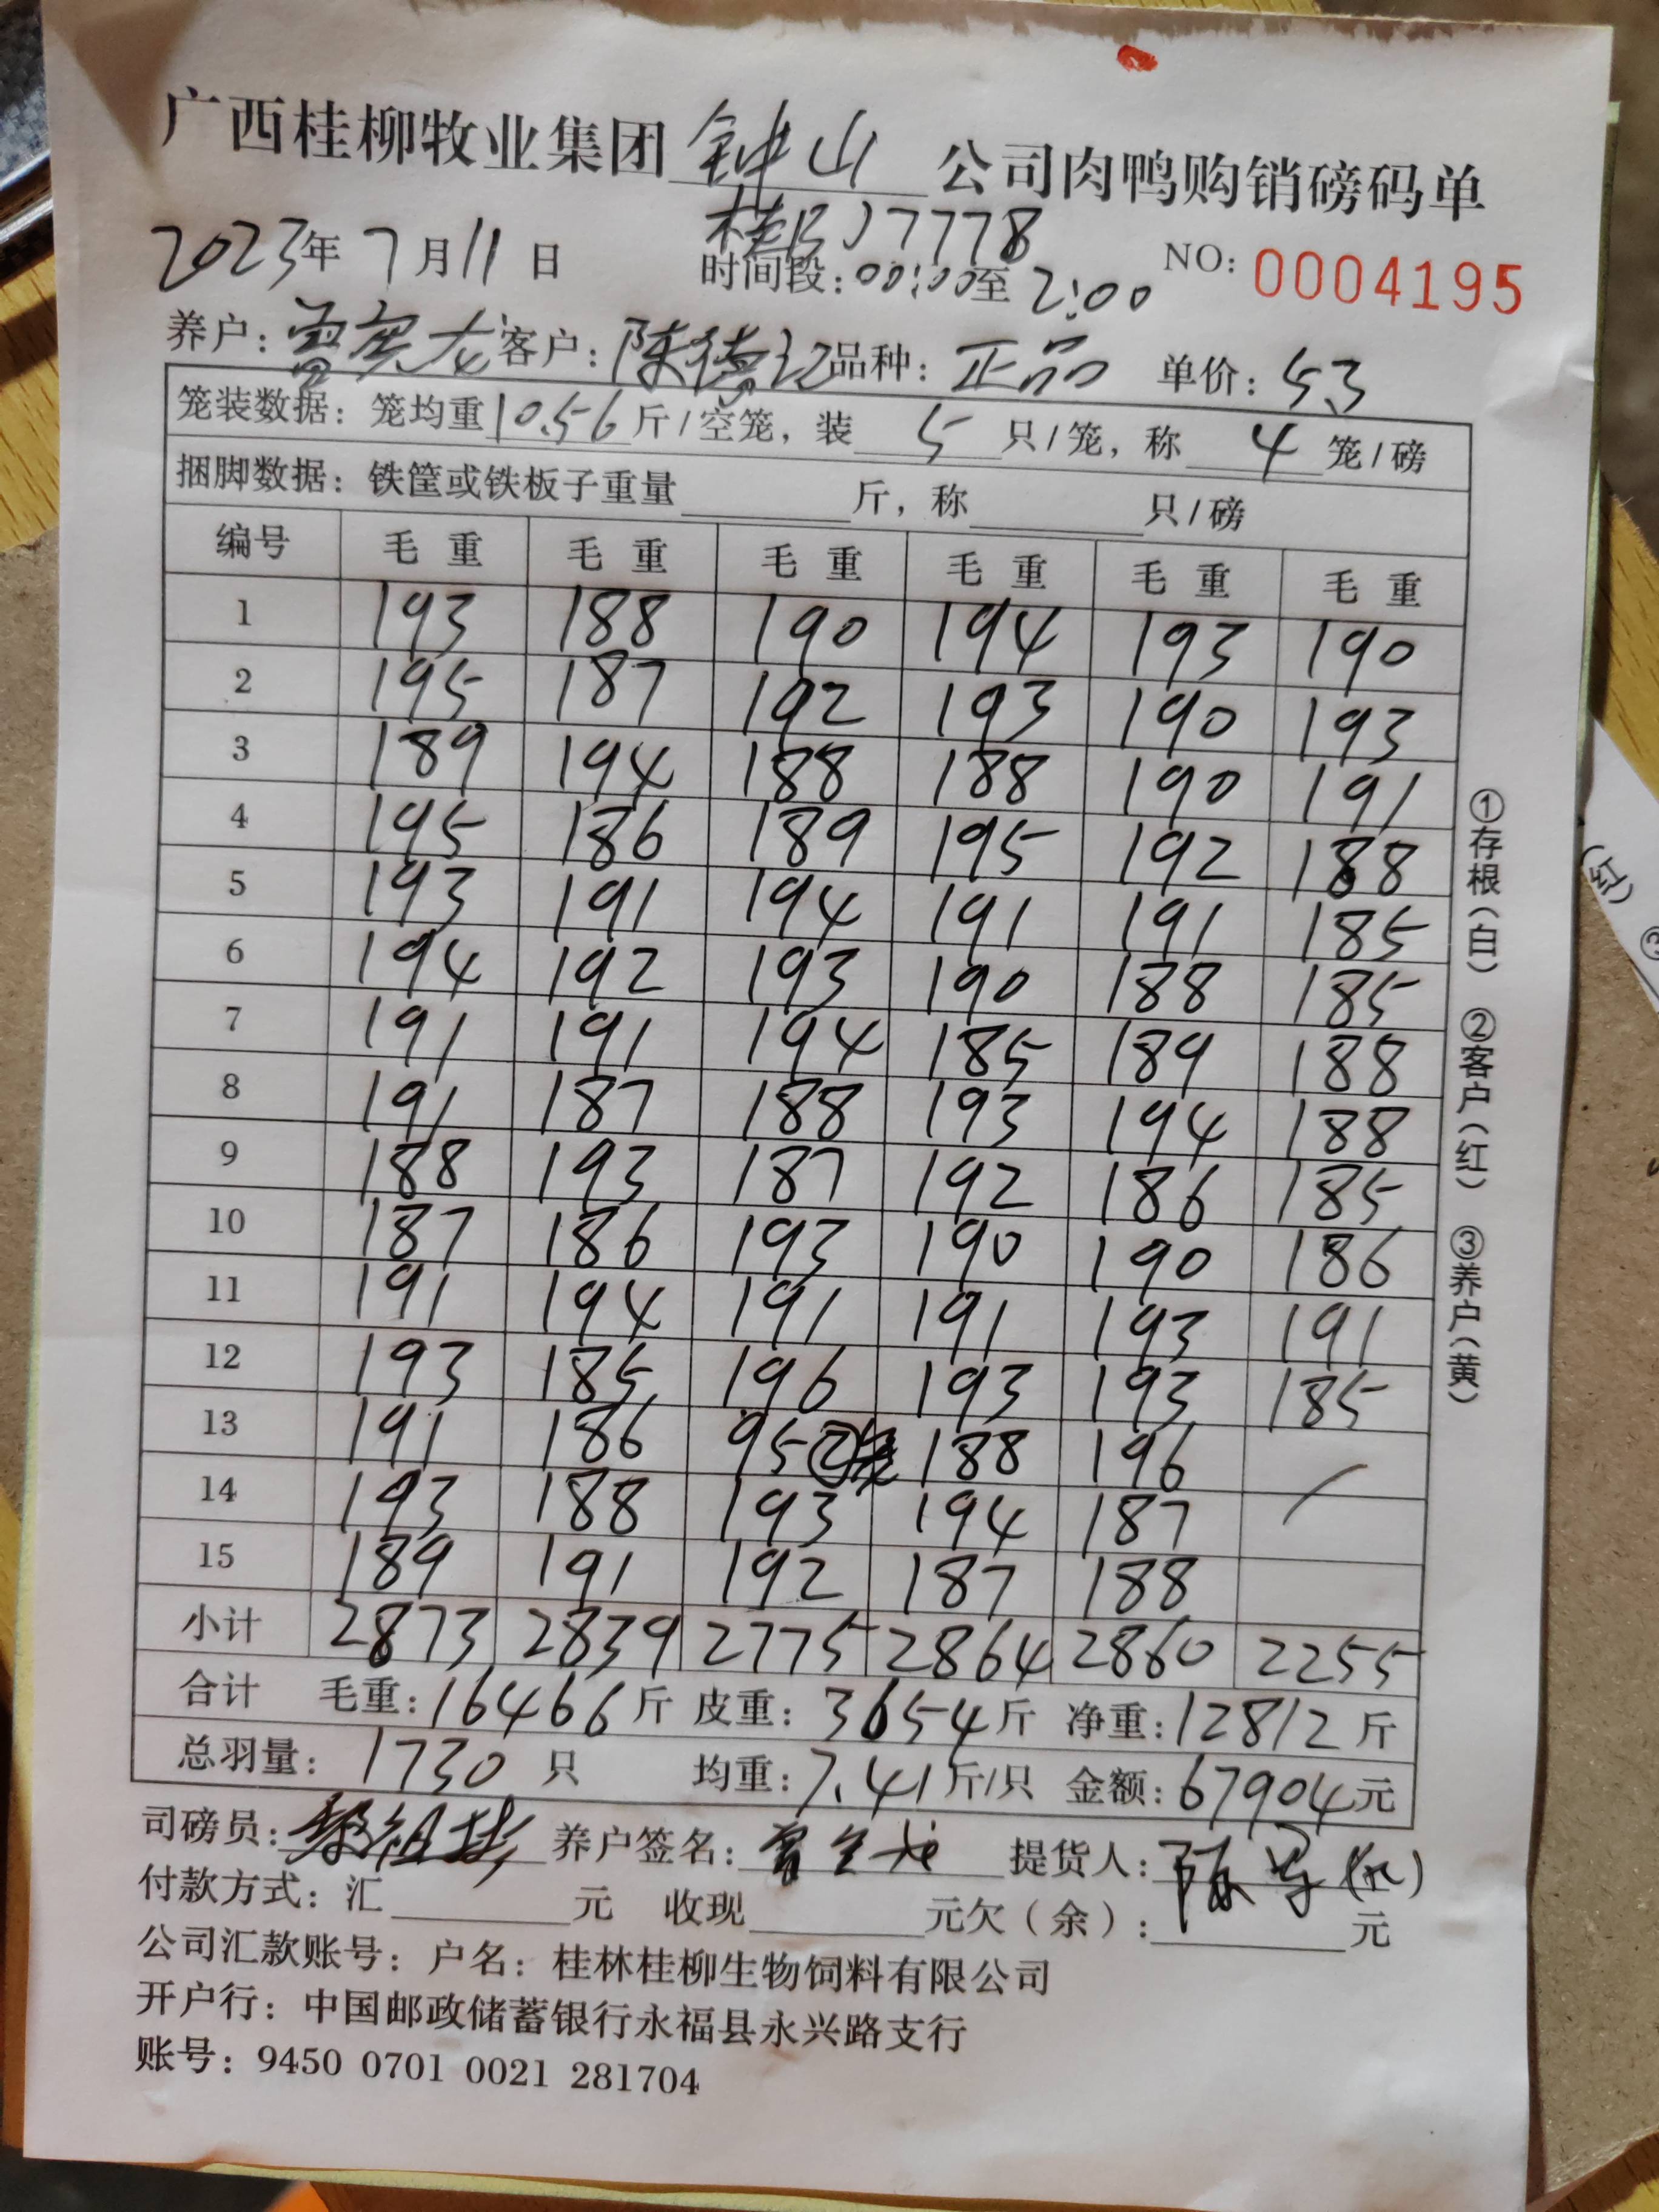 广西桂柳牧业集团 钟山 公司肉鸭购销磅码单
桂 J7778
2023年 7月11日 时间段:00:00至2:00 NO: 0004195
养户: 龙 客户: 陈德记 品种: 正品 单价: 5.3
笼装数据: 笼均重10.56斤/空笼, 装 5 只/笼, 称 4 笼/磅
捆脚数据: 铁筐或铁板子重量 斤, 称 只/磅
编号 毛重 毛重 毛重 毛重 毛重 毛重
1 193 188 190 194 193 190
2 195 187 192 193 190 193
3 189 194 188 188 190 191
4 195 186 189 195 192 188
5 193 191 194 191 191 185
6 194 192 193 190 188 185
7 191 191 194 185 189 188
8 191 187 188 193 194 188
9 188 193 187 192 186 185
10 187 186 193 190 190 186
11 191 194 191 191 193 191
12 193 185 196 193 193 185
13 191 186 95② 188 196
14 193 188 193 194 187
15 189 191 192 187 188
小计 2873 2839 2775 2864 2860 2255
合计 毛重:16466斤 皮重: 3654斤 净重:12812斤
总羽量: 1730 只 均重:7.41斤/只 金额:67904元
司磅员: 养户签名: 提货人: 陈
付款方式: 汇 元 收现 元欠(余): 元
公司汇款账号: 户名: 桂林桂柳生物饲料有限公司
开户行: 中国邮政储蓄银行永福县永兴路支行
账号: 9450 0701 0021 281704
①存根(白) ②客户(红) ③养户(黄)
(红) ③